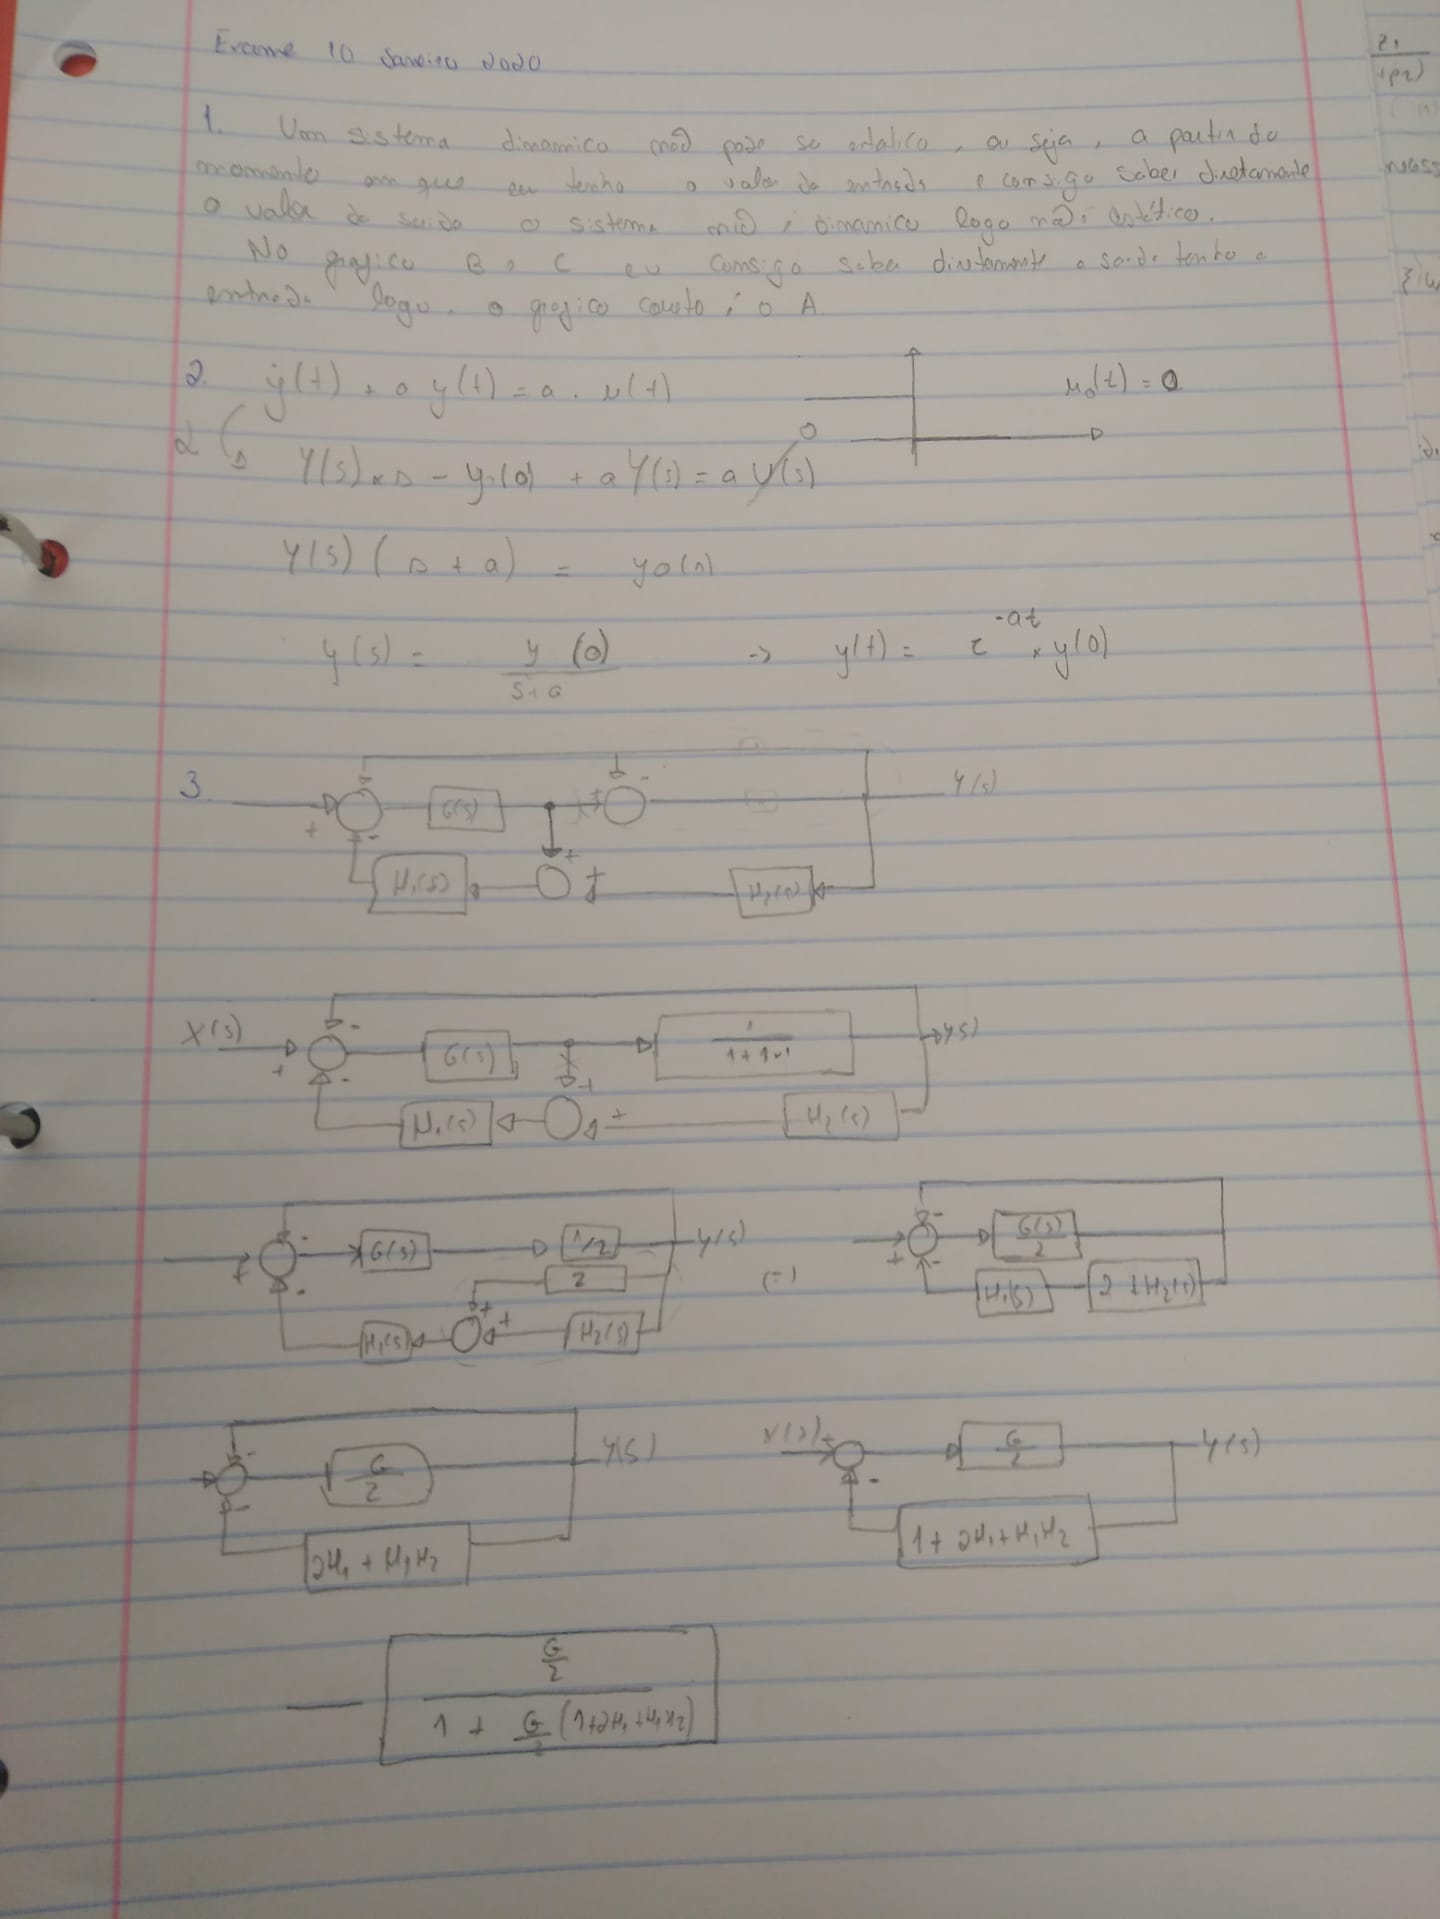 Exame 10 Janeiro 2020
1. Um sistema dinamico não pode se estatico, ou seja, a partir do
momento em que eu tenho o valor da entrada e consigo saber diretamente
o valor de saida o sistema não é dinamico logo não é estático.
No grafico B e C eu consigo saber diretamente a saida tenho a
entrada logo o grafico correto é o A
2. ẏ(t) + a y(t) = a . u(t)
u0(t) = 0
0
Y(s) × s - y(0) + a Y(s) = a U(s)
Y(s) ( s + a ) =
y(s) = y (0) / s+a -> y(t) = e^-at × y(0)
3. + - G(s) + - Y(s)
- H1(s) + + H2(s)
X(s) + - G(s) 1 / 1+1×1 y(s)
- H1(s) + + H2(s)
+ - G(s) 1/2 Y(s)
2
- H1(s) + + H2(s)
(=)
+ - G(s)/2
- H1(s) 2 + H2(s)
- G/2 Y(s)
- 2H1 + H1H2
X(s) + G/2 Y(s)
- 1 + 2H1 + H1H2
G/2 / 1 + G/2 (1+2H1+H1H2)